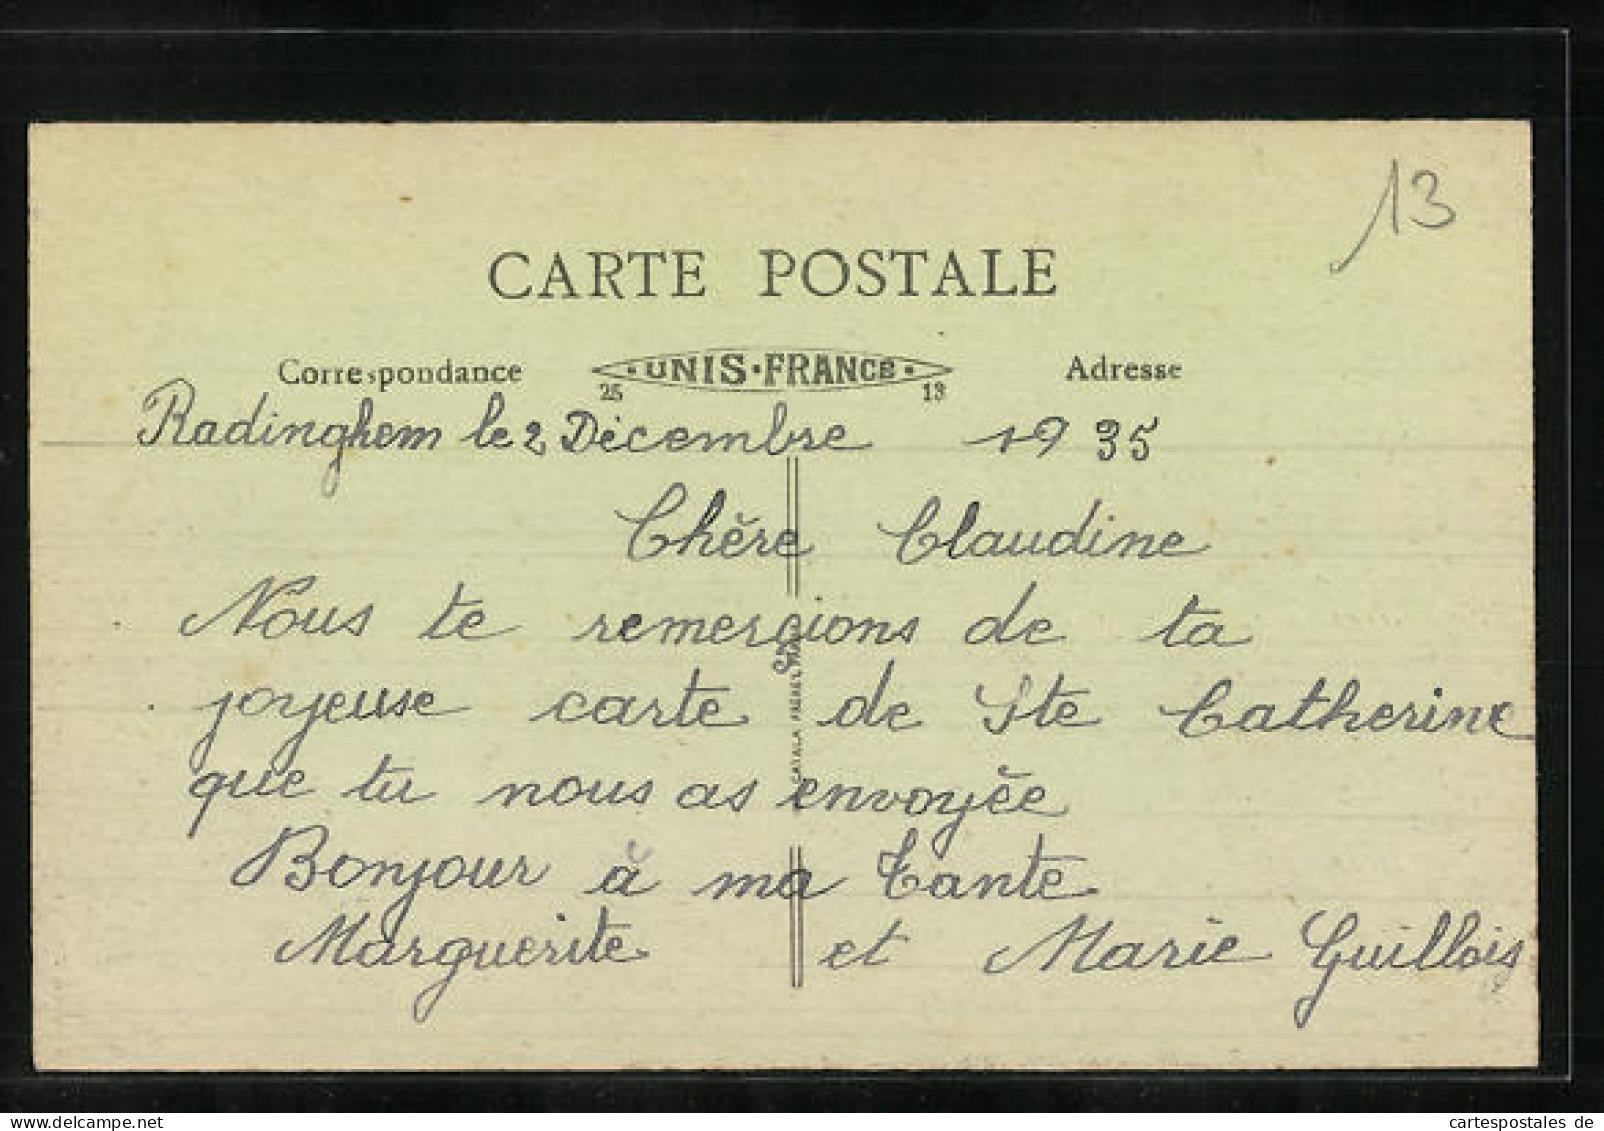 13
CARTE POSTALE
Correspondance
UNIS·FRANCE
Adresse
25
13
Radinghem le 2 Décembre 1935
Chère Claudine
Nous te remercions de ta
joyeuse carte de Ste Catherine
que tu nous as envoyée
Bonjour à ma Tante
Marguerite et Marie Guillois
www.delcampe.net
cartespostales de